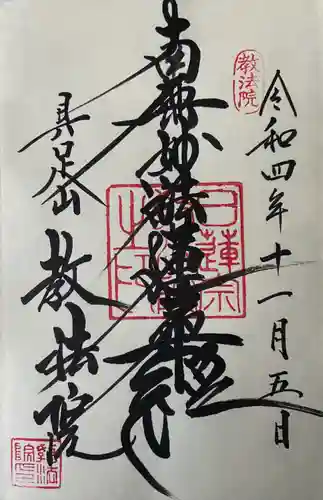 教法院
令和四年十一月五日
南無妙法蓮華経
日蓮宗
具足山
教法院